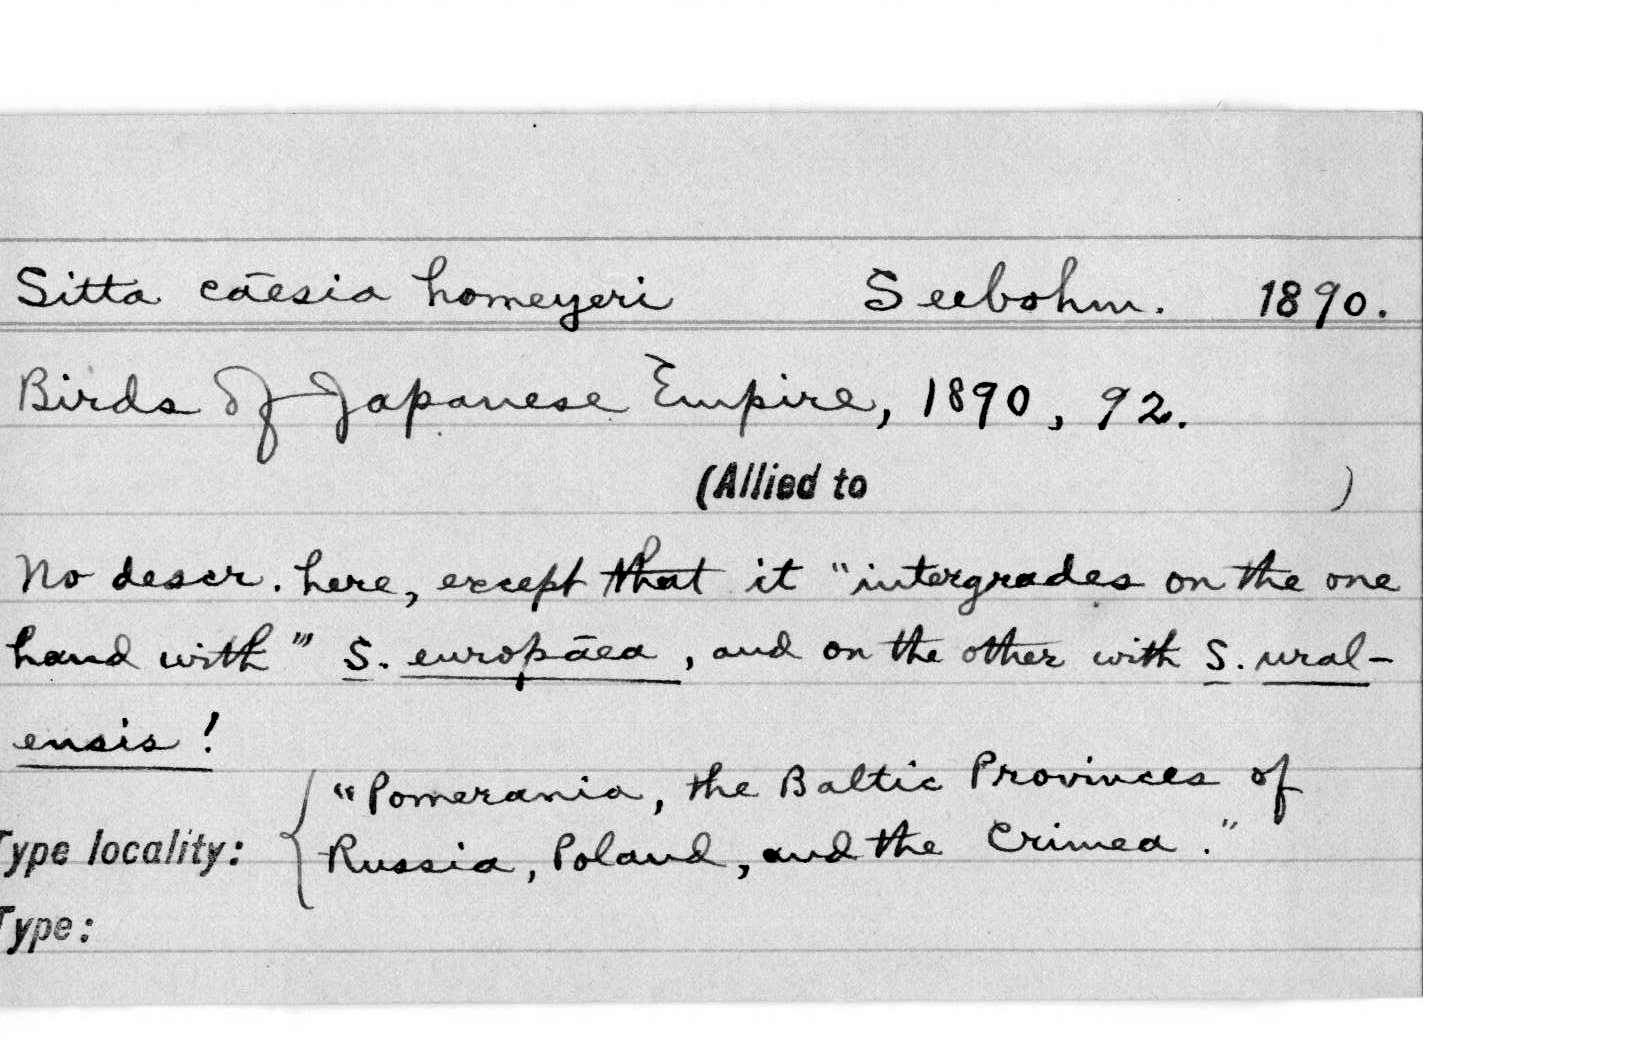 Sitta cāesia homeyeri Seebohm. 1890.
Birds of Japanese Empire, 1890, 92.
(Allied to )
No descr. here, except that it "intergrades on the one
hand with"' S. europāea, and on the other with S. ural-
ensis!
"Pomerania, the Baltic Provinces of
Type locality: { Russia, Poland, and the Crimea."
Type: